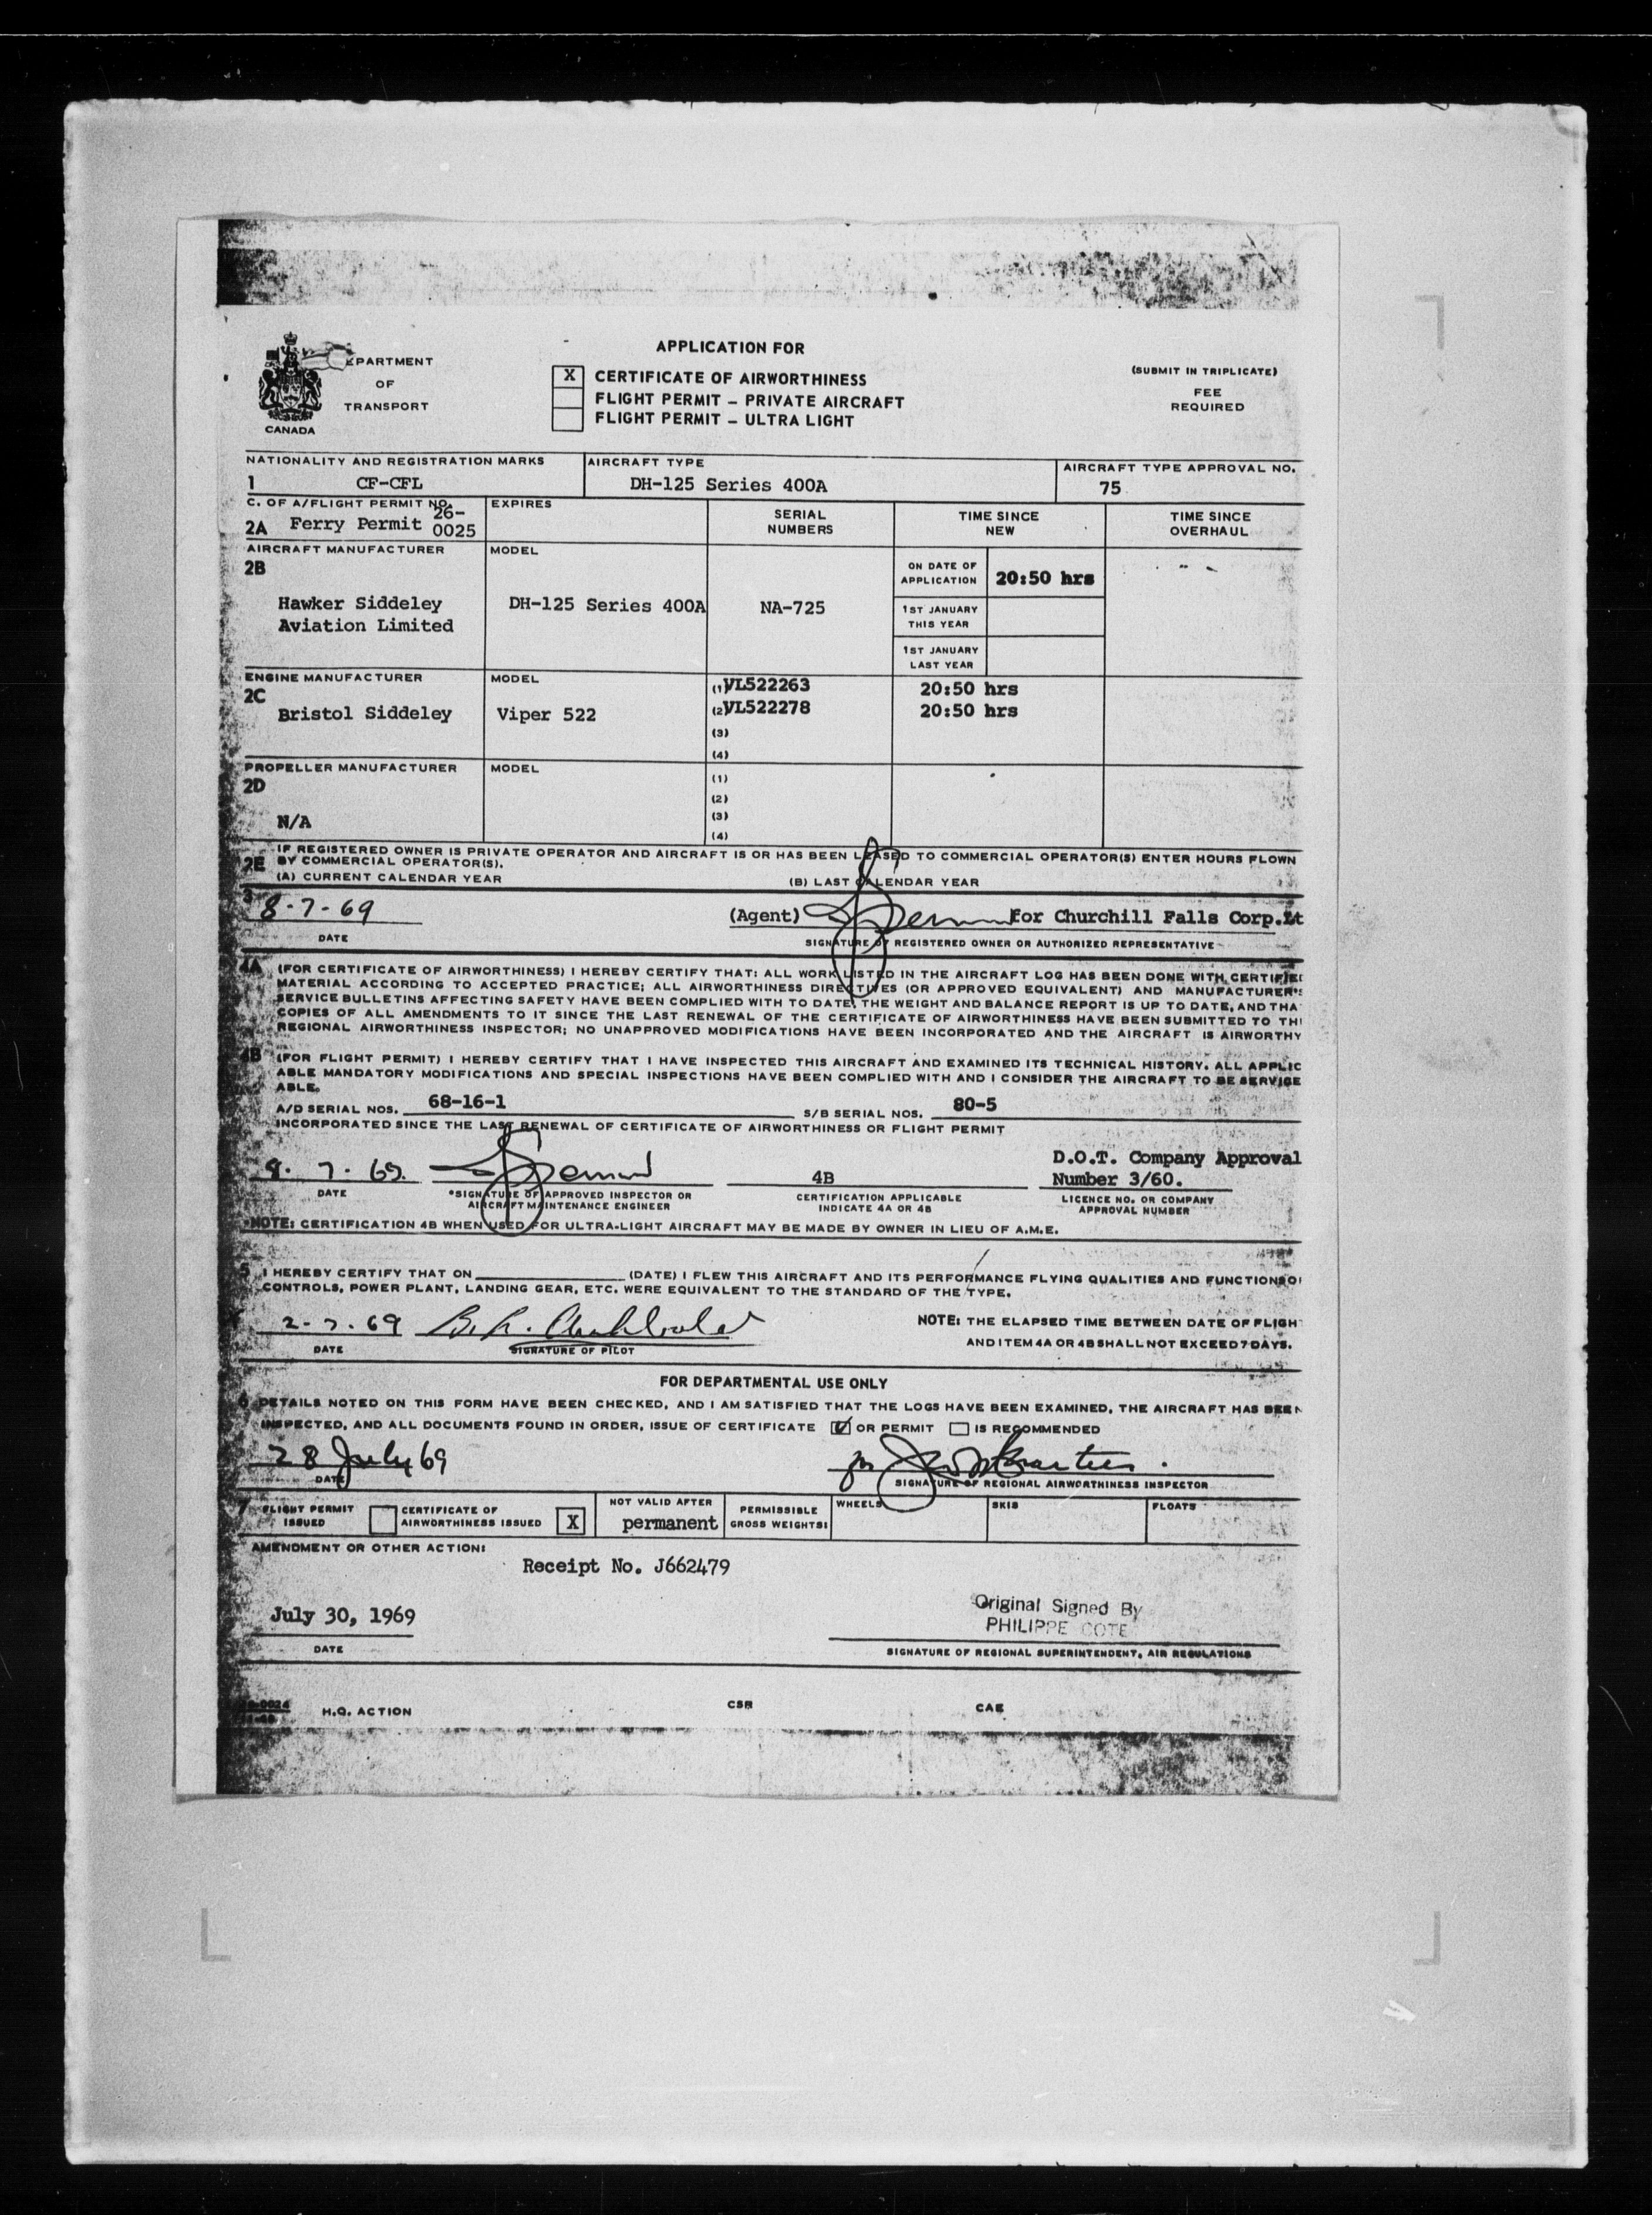 APPLICATION FOR
DEPARTMENT
OF
TRANSPORT
CANADA
X CERTIFICATE OF AIRWORTHINESS
FLIGHT PERMIT – PRIVATE AIRCRAFT
FLIGHT PERMIT – ULTRA LIGHT
(SUBMIT IN TRIPLICATE)
FEE
REQUIRED
NATIONALITY AND REGISTRATION MARKS
1 CF-CFL
AIRCRAFT TYPE
DH-125 Series 400A
AIRCRAFT TYPE APPROVAL NO.
75
C. OF A/FLIGHT PERMIT NO.
2A Ferry Permit 26-
0025
EXPIRES
SERIAL
NUMBERS
TIME SINCE
NEW
TIME SINCE
OVERHAUL
AIRCRAFT MANUFACTURER
2B
Hawker Siddeley
Aviation Limited
MODEL
DH-125 Series 400A
NA-725
ON DATE OF
APPLICATION
20:50 hrs
1ST JANUARY
THIS YEAR
1ST JANUARY
LAST YEAR
ENGINE MANUFACTURER
2C
Bristol Siddeley
MODEL
Viper 522
(1) VL522263
(2) VL522278
(3)
(4)
20:50 hrs
20:50 hrs
PROPELLER MANUFACTURER
2D
N/A
MODEL
(1)
(2)
(3)
(4)
2E IF REGISTERED OWNER IS PRIVATE OPERATOR AND AIRCRAFT IS OR HAS BEEN LEASED TO COMMERCIAL OPERATOR(S) ENTER HOURS FLOWN
BY COMMERCIAL OPERATOR(S).
(A) CURRENT CALENDAR YEAR (B) LAST CALENDAR YEAR
3 8-7-69 (Agent) for Churchill Falls Corp.Lt
DATE SIGNATURE OF REGISTERED OWNER OR AUTHORIZED REPRESENTATIVE
4A (FOR CERTIFICATE OF AIRWORTHINESS) I HEREBY CERTIFY THAT: ALL WORK LISTED IN THE AIRCRAFT LOG HAS BEEN DONE WITH CERTIFIE
MATERIAL ACCORDING TO ACCEPTED PRACTICE; ALL AIRWORTHINESS DIRECTIVES (OR APPROVED EQUIVALENT) AND MANUFACTURER'S
SERVICE BULLETINS AFFECTING SAFETY HAVE BEEN COMPLIED WITH TO DATE, THE WEIGHT AND BALANCE REPORT IS UP TO DATE, AND THA
COPIES OF ALL AMENDMENTS TO IT SINCE THE LAST RENEWAL OF THE CERTIFICATE OF AIRWORTHINESS HAVE BEEN SUBMITTED TO TH
REGIONAL AIRWORTHINESS INSPECTOR; NO UNAPPROVED MODIFICATIONS HAVE BEEN INCORPORATED AND THE AIRCRAFT IS AIRWORTHY
4B (FOR FLIGHT PERMIT) I HEREBY CERTIFY THAT I HAVE INSPECTED THIS AIRCRAFT AND EXAMINED ITS TECHNICAL HISTORY. ALL APPLIC
ABLE MANDATORY MODIFICATIONS AND SPECIAL INSPECTIONS HAVE BEEN COMPLIED WITH AND I CONSIDER THE AIRCRAFT TO BE SERVICE
ABLE.
A/D SERIAL NOS. 68-16-1 S/B SERIAL NOS. 80-5
INCORPORATED SINCE THE LAST RENEWAL OF CERTIFICATE OF AIRWORTHINESS OR FLIGHT PERMIT
8. 7. 69. 4B D.O.T. Company Approval
Number 3/60.
DATE
*SIGNATURE OF APPROVED INSPECTOR OR
AIRCRAFT MAINTENANCE ENGINEER
CERTIFICATION APPLICABLE
INDICATE 4A OR 4B
LICENCE NO. OR COMPANY
APPROVAL NUMBER
*NOTE: CERTIFICATION 4B WHEN USED FOR ULTRA-LIGHT AIRCRAFT MAY BE MADE BY OWNER IN LIEU OF A.M.E.
5 I HEREBY CERTIFY THAT ON (DATE) I FLEW THIS AIRCRAFT AND ITS PERFORMANCE FLYING QUALITIES AND FUNCTION O
CONTROLS, POWER PLANT, LANDING GEAR, ETC. WERE EQUIVALENT TO THE STANDARD OF THE TYPE.
2-7-69
DATE SIGNATURE OF PILOT
NOTE: THE ELAPSED TIME BETWEEN DATE OF FLIGH
AND ITEM 4A OR 4B SHALL NOT EXCEED 7 DAYS.
FOR DEPARTMENTAL USE ONLY
6 DETAILS NOTED ON THIS FORM HAVE BEEN CHECKED, AND I AM SATISFIED THAT THE LOGS HAVE BEEN EXAMINED, THE AIRCRAFT HAS BEEN
INSPECTED, AND ALL DOCUMENTS FOUND IN ORDER, ISSUE OF CERTIFICATE OR PERMIT IS RECOMMENDED
28 July 69
DATE SIGNATURE OF REGIONAL AIRWORTHINESS INSPECTOR
7 FLIGHT PERMIT
ISSUED
CERTIFICATE OF
AIRWORTHINESS ISSUED X
NOT VALID AFTER
permanent
PERMISSIBLE
GROSS WEIGHTS:
WHEELS
SKIS
FLOATS
AMENDMENT OR OTHER ACTION:
Receipt No. J662479
July 30, 1969
DATE
Original Signed By
PHILIPPE COTE
SIGNATURE OF REGIONAL SUPERINTENDENT, AIR REGULATIONS
H.Q. ACTION CSR CAE